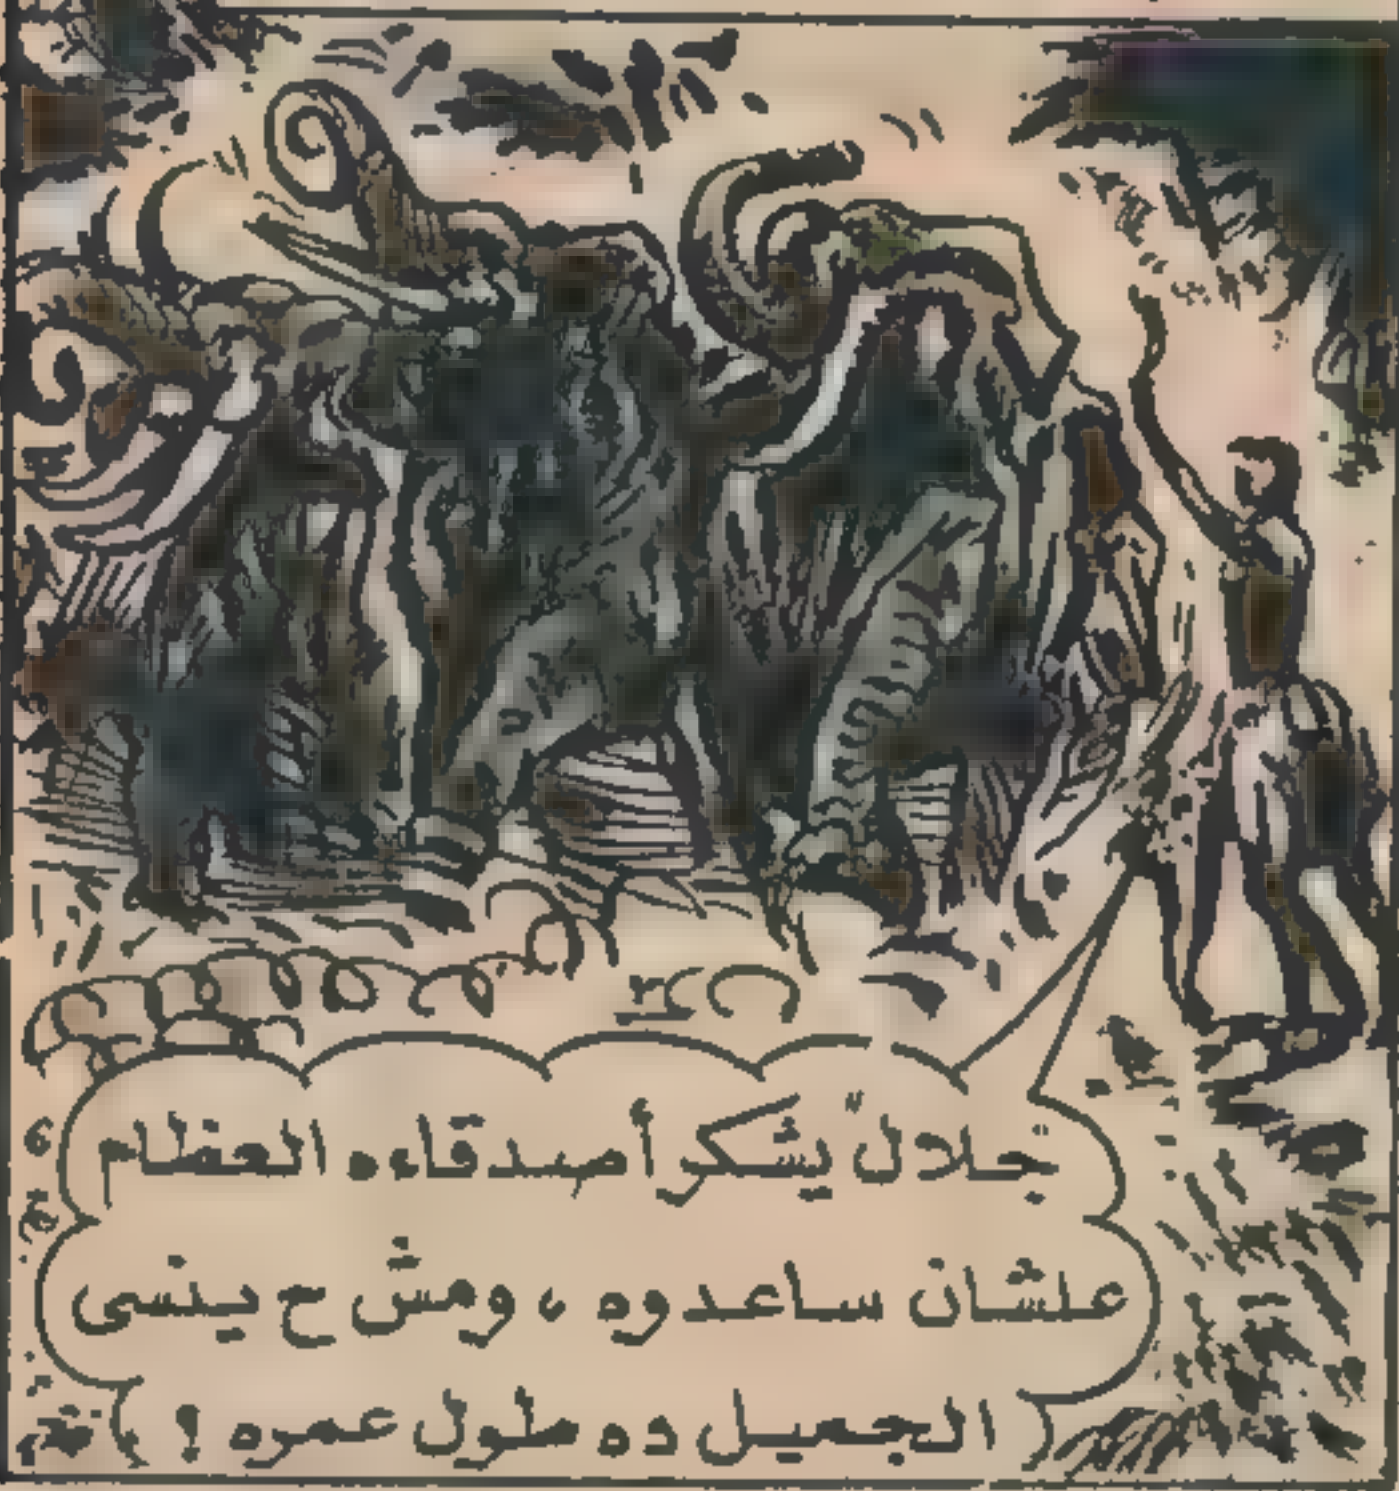 "جلال" يشكر أصدقاءه العظام
علشان ساعدوه ، ومش ح ينسى
الجميل ده طول عمره !